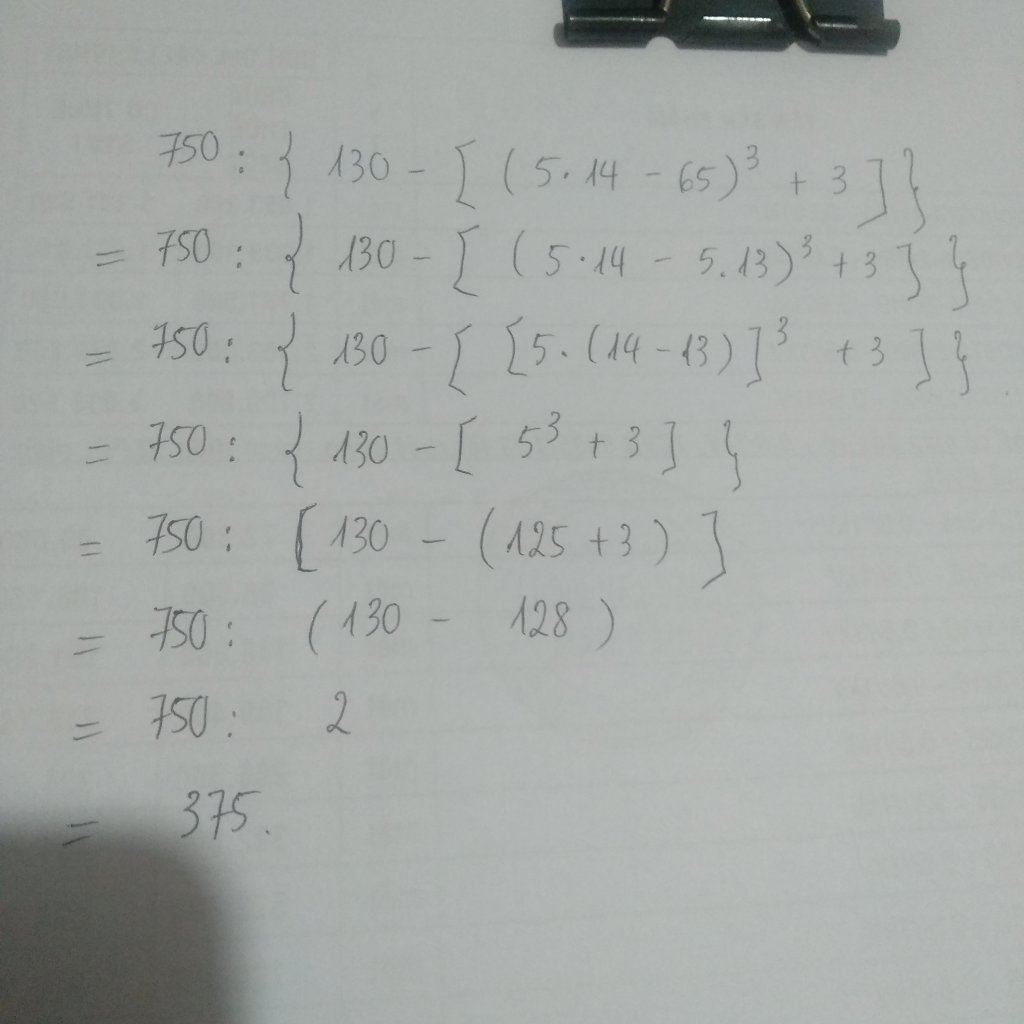 750 : { 130 - [ ( 5 . 14 - 65 )³ + 3 ] }
= 750 : { 130 - [ ( 5 . 14 - 5 . 13 )³ + 3 ] }
= 750 : { 130 - [ [ 5 . ( 14 - 13 ) ]³ + 3 ] }
= 750 : { 130 - [ 5³ + 3 ] }
= 750 : [ 130 - ( 125 + 3 ) ]
= 750 : ( 130 - 128 )
= 750 : 2
= 375.